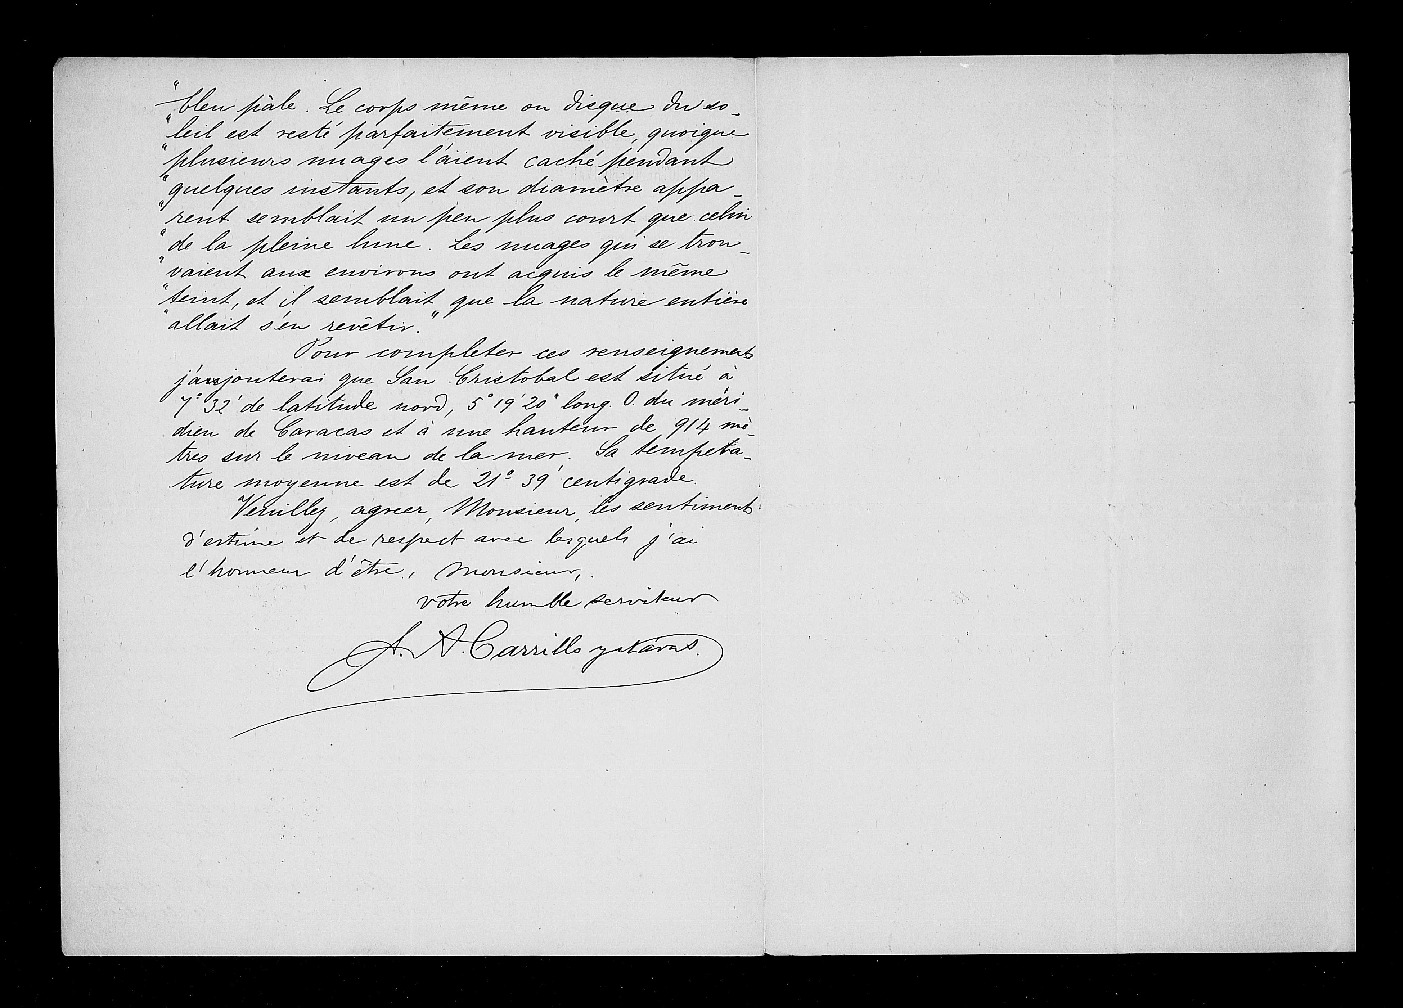 "bleu pâle. Le corps même ou disque du so-
"leil est resté parfaitement visible, quoique
"plusieurs nuages l'aient caché pendant
"quelques instants, et son diamètre appa-
"rent semblait un peu plus court que celui
"de la pleine lune. Les nuages qui se trou-
"vaient aux environs ont acquis le même
"teint, et il semblait que la nature entière
"allait s'en revêtir."
Pour completer ces renseignements
j'ajouterai que San Cristobal est situé à
7° 32' de latitude nord, 5° 19' 20" long. O. du méri-
dien de Caracas et à une hauteur de 914 mè-
tres sur le niveau de la mer. Sa tempera-
ture moyenne est de 21° 39' centigrade.
Veuillez, agreer, Monsieur, les sentiments
d'estime et de respect avec lesquels j'ai
l'honneur d'être, Monsieur,
votre humble serviteur
A. Carrillo y